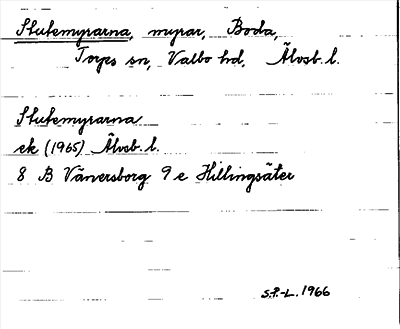 Stutemyrarna, myrar, Boda,
Torps sn, Valbo hd, Älvsb. l.
Stutemyrarna
ek (1965) Älvsb. l.
8 B Vänersborg 9 e Hillingsäter
S.P.-L. 1966